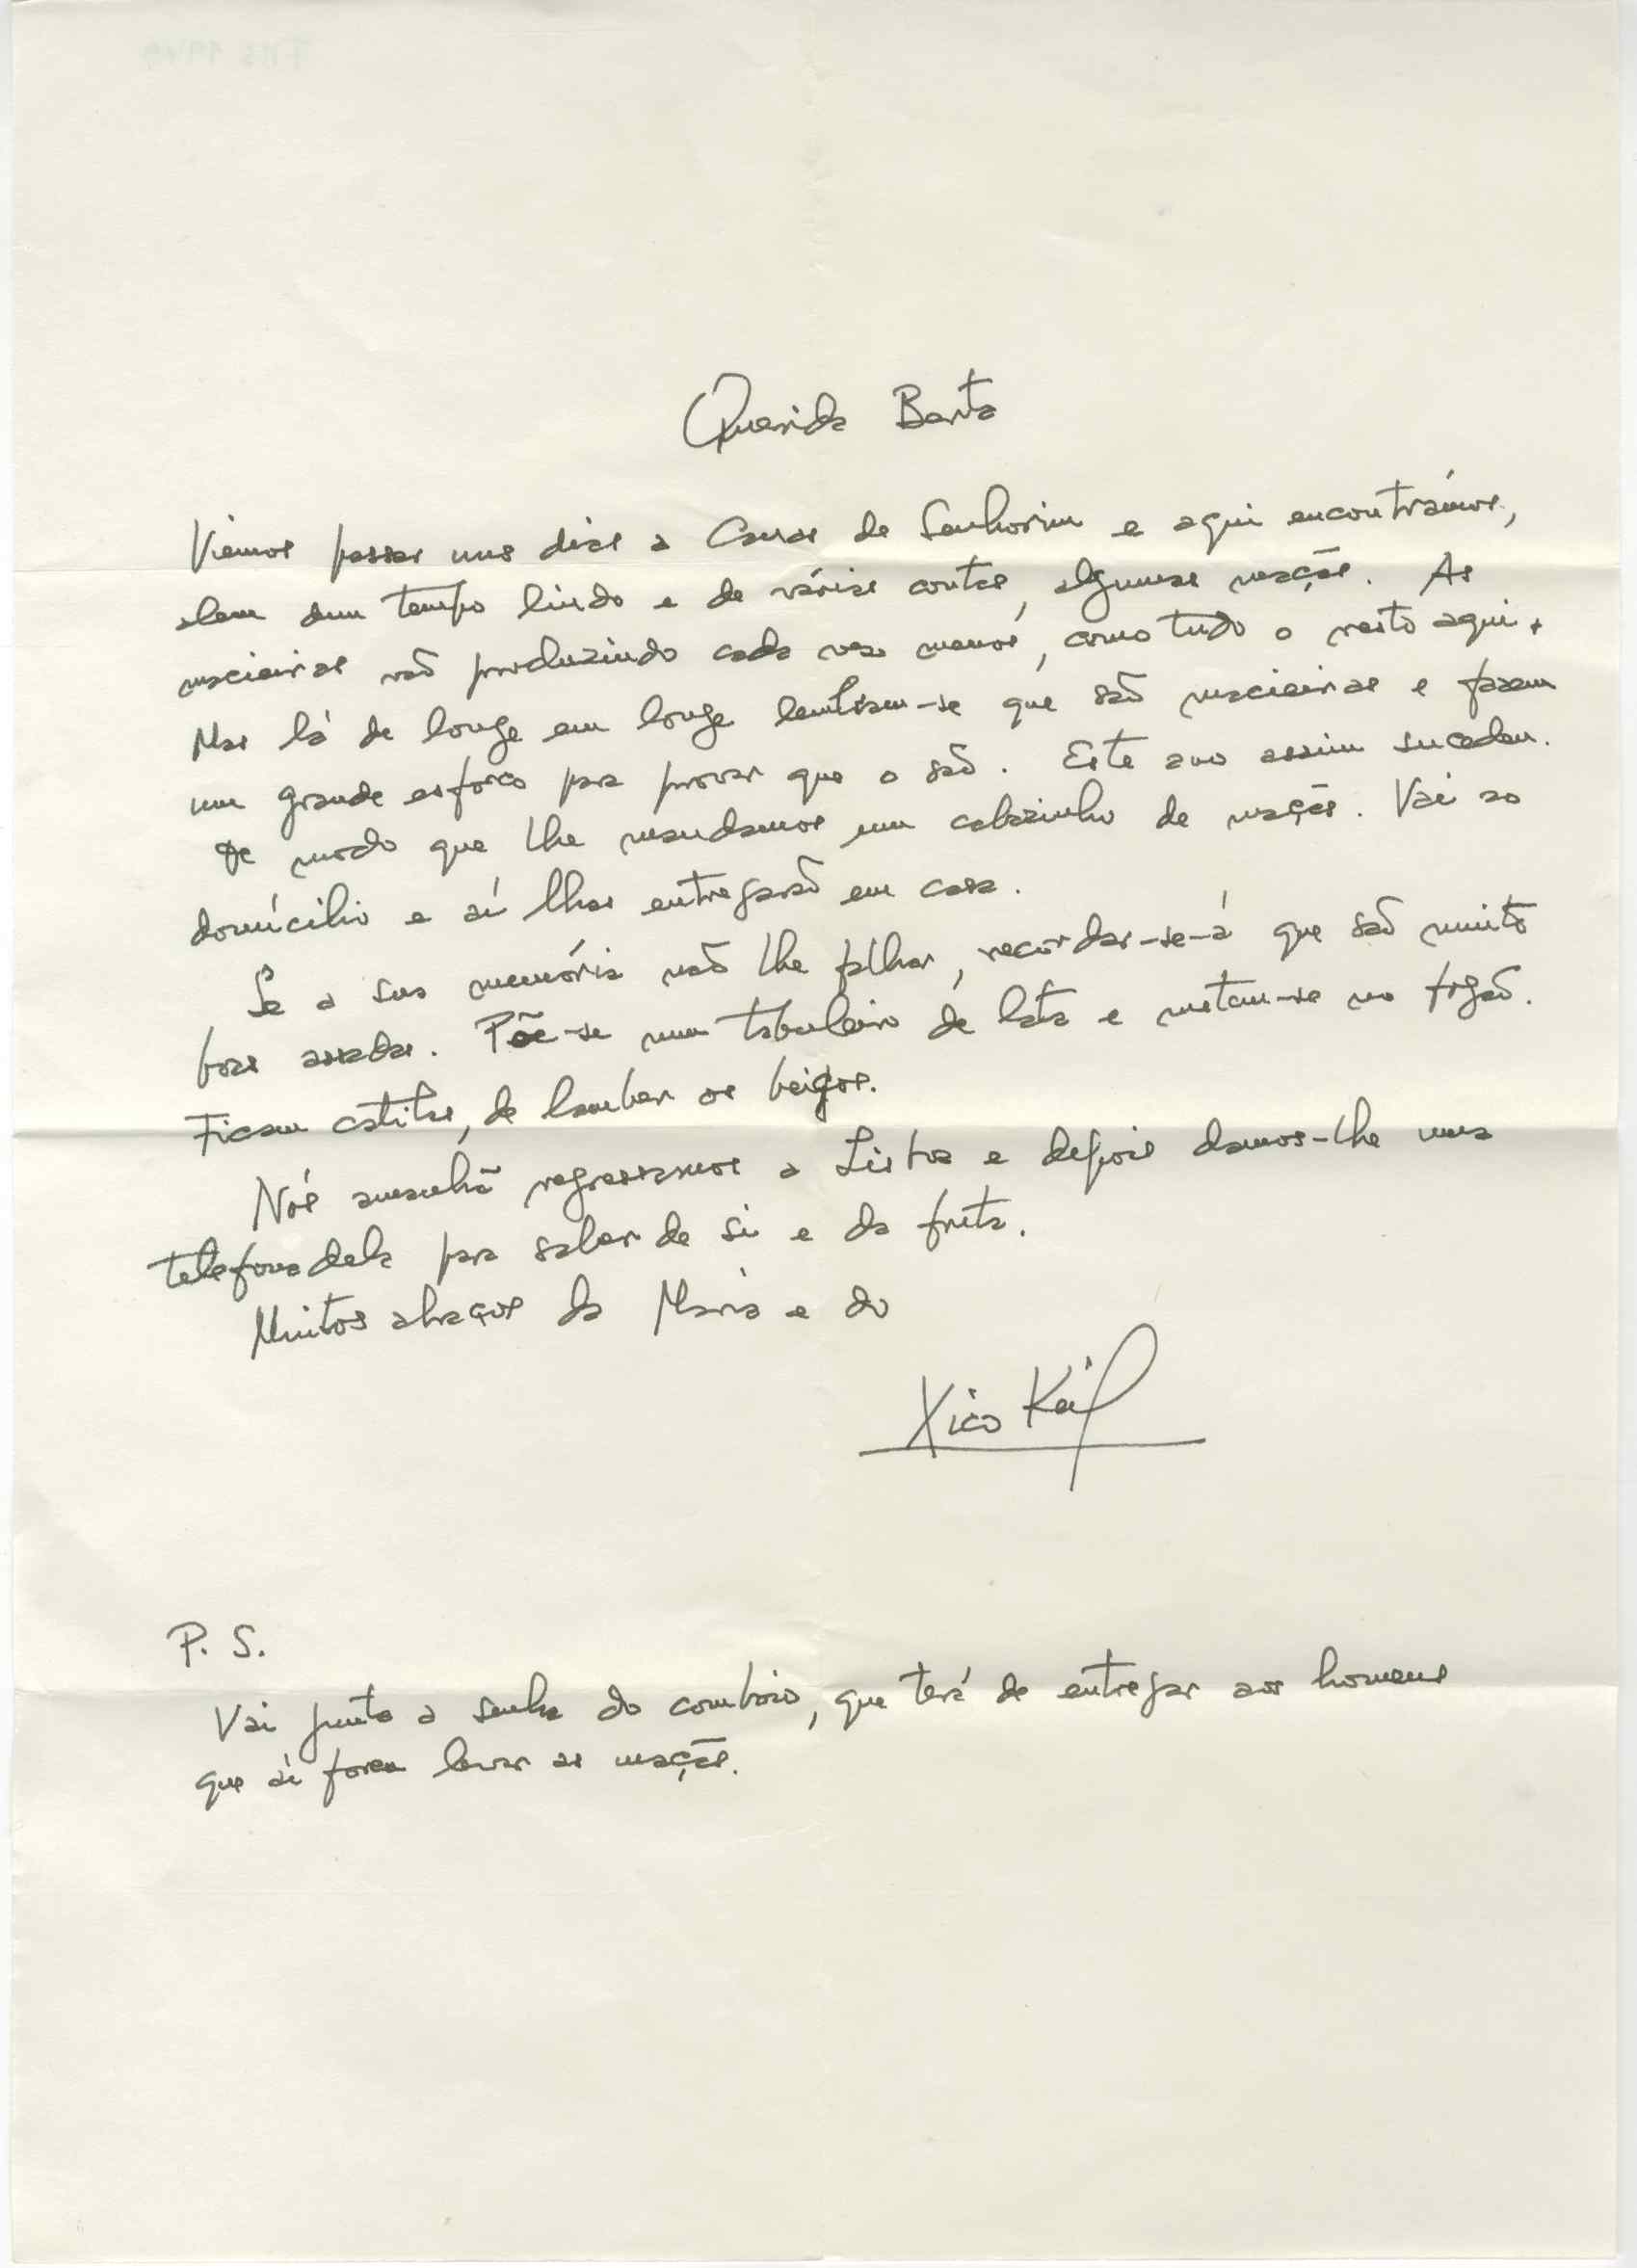 Querida Berta
Viemos passar uns dias a Canas de Senhorim e aqui encontrámos,
alem dum tempo lindo e de várias contas, algumas maçãs. As
macieiras vão produzindo cada vez menos, como tudo o resto aqui.
Mas lá de longe em longe lembram-se que são macieiras e fazem
um grande esforço para provar que o são. Este ano assim sucedeu.
De modo que lhe mandamos um cabazinho de maçãs. Vai ao
domícilio e aí lhas entregarão em casa.
Se a sua memória não lhe falhar, recordar-se-á que são muito
boas assadas. Põe-se num tabuleiro de lata e metem-se no fogão.
Ficam catitas, de lamber os beiços.
Nós amanhã regressamos a Lisboa e depois damos-lhe uma
telefonadela para saber de si e da fruta.
Muitos abraços da Maria e do
Xico Keil
P. S.
Vai junto a senha do comboio, que terá de entregar aos homens
que aí forem levar as maçãs.